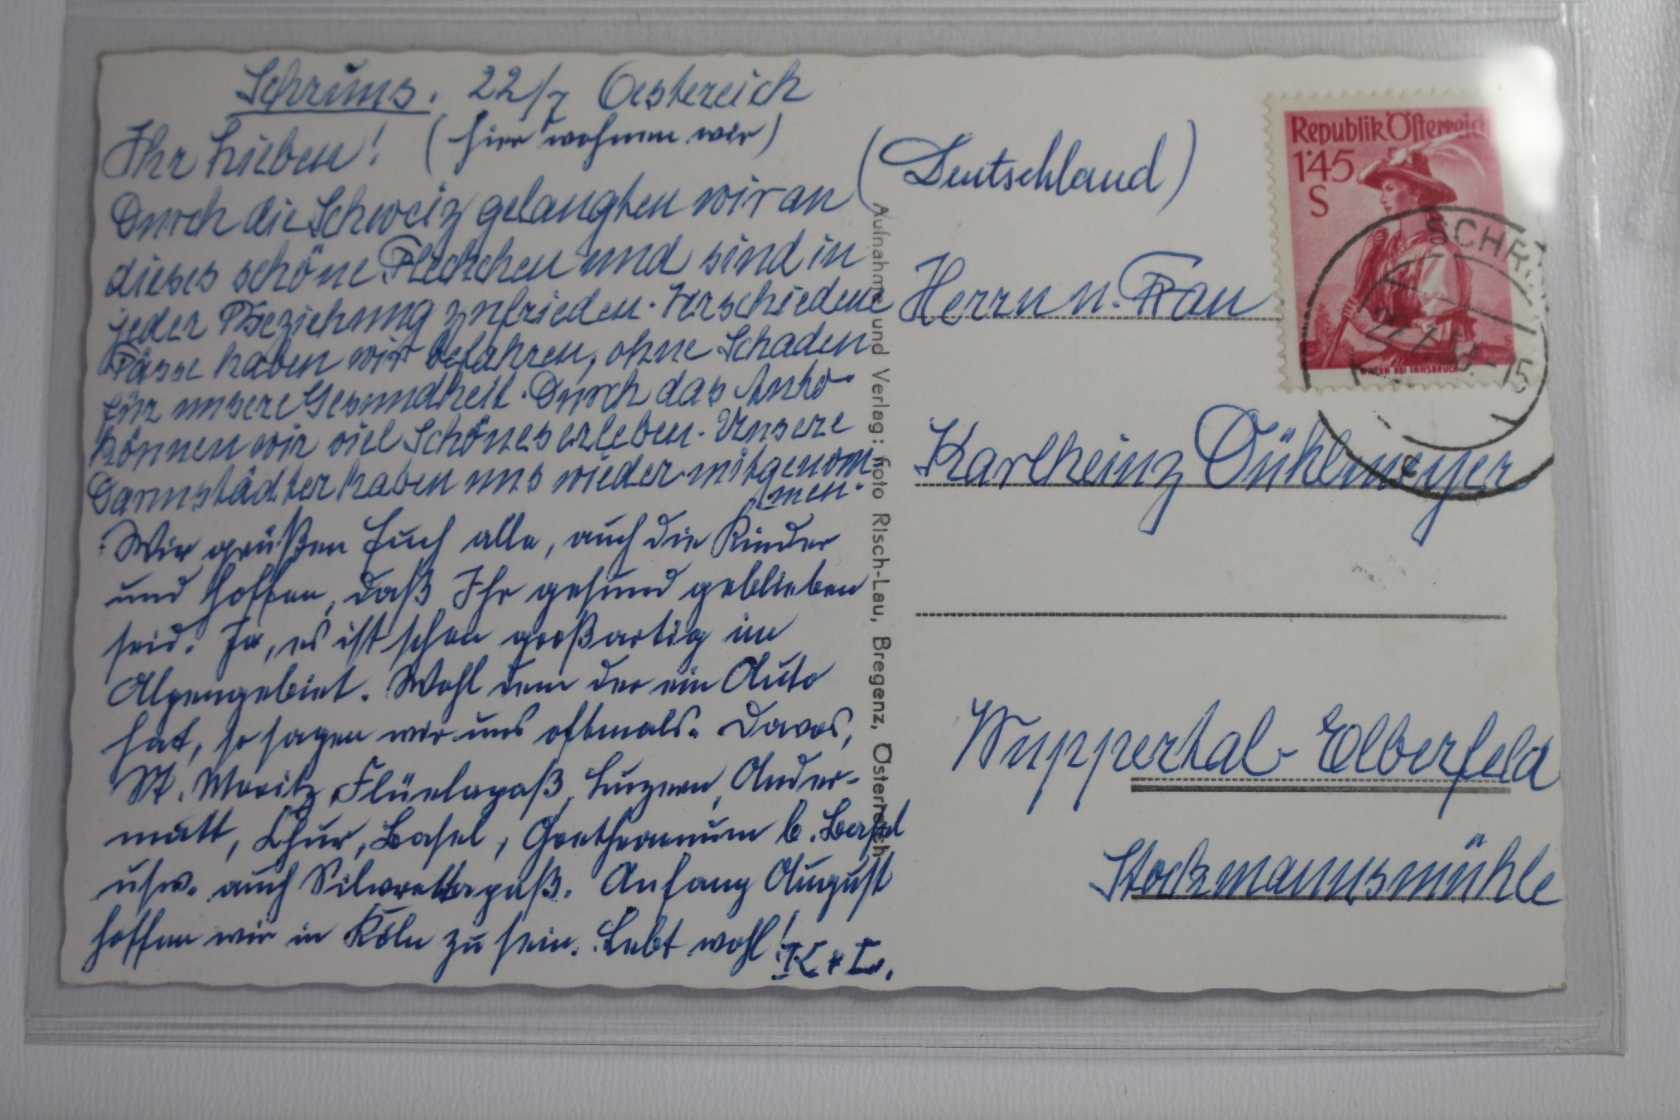 Schruns. 22/7 Oestereich
Ihr Lieben! (hier wohnen wir)
Durch die Schweiz gelangten wir an
dieses schöne Fleckchen und sind in
jeder Beziehung zufrieden. Verschiedene
Pässe haben wir befahren, ohne Schaden
für unsere Gesundheit. Durch das Auto
können wir viel Schönes erleben. Unsere
Darmstädter haben uns wieder mitgenom
men.
Wir grüßen Euch alle, auch die Kinder
und hoffen, daß Ihr gesund geblieben
seid. Ja, es ist schon großartig im
Alpengebiet. Wohl dem der ein Auto
hat, so sagen wir uns oftmals. Davos,
St. Moritz, Flüelapaß, Luzern, Ander-
matt, Chur, Basel, Goetheanum b. Basel
usw. auch Silvrettapaß. Anfang August
hoffen wir in Köln zu sein. Lebt wohl!
K + L.
Aufnahme und Verlag: Foto Risch-Lau, Bregenz, Österreich
(Deutschland)
Herrn u. Frau
Karlheinz Dühlmeyer
Wuppertal-Elberfeld
Stockmannsmühle
Republik Österreich
1'45
S
SCHR